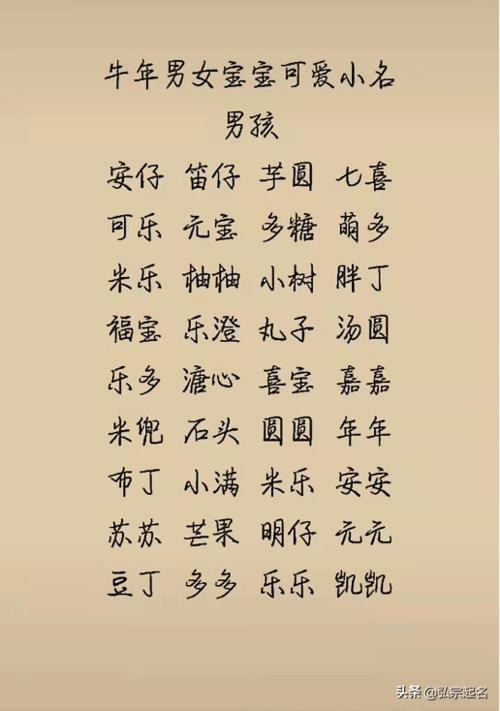 牛年男女宝宝可爱小名
男孩
安仔 笛仔 芋圆 七喜
可乐 元宝 多糖 萌多
米乐 柚柚 小树 胖丁
福宝 乐澄 丸子 汤圆
乐多 溏心 喜宝 嘉嘉
米兜 石头 圆圆 年年
布丁 小满 米乐 安安
苏苏 芒果 明仔 元元
豆丁 多多 乐乐 凯凯
头条 @弘宗起名